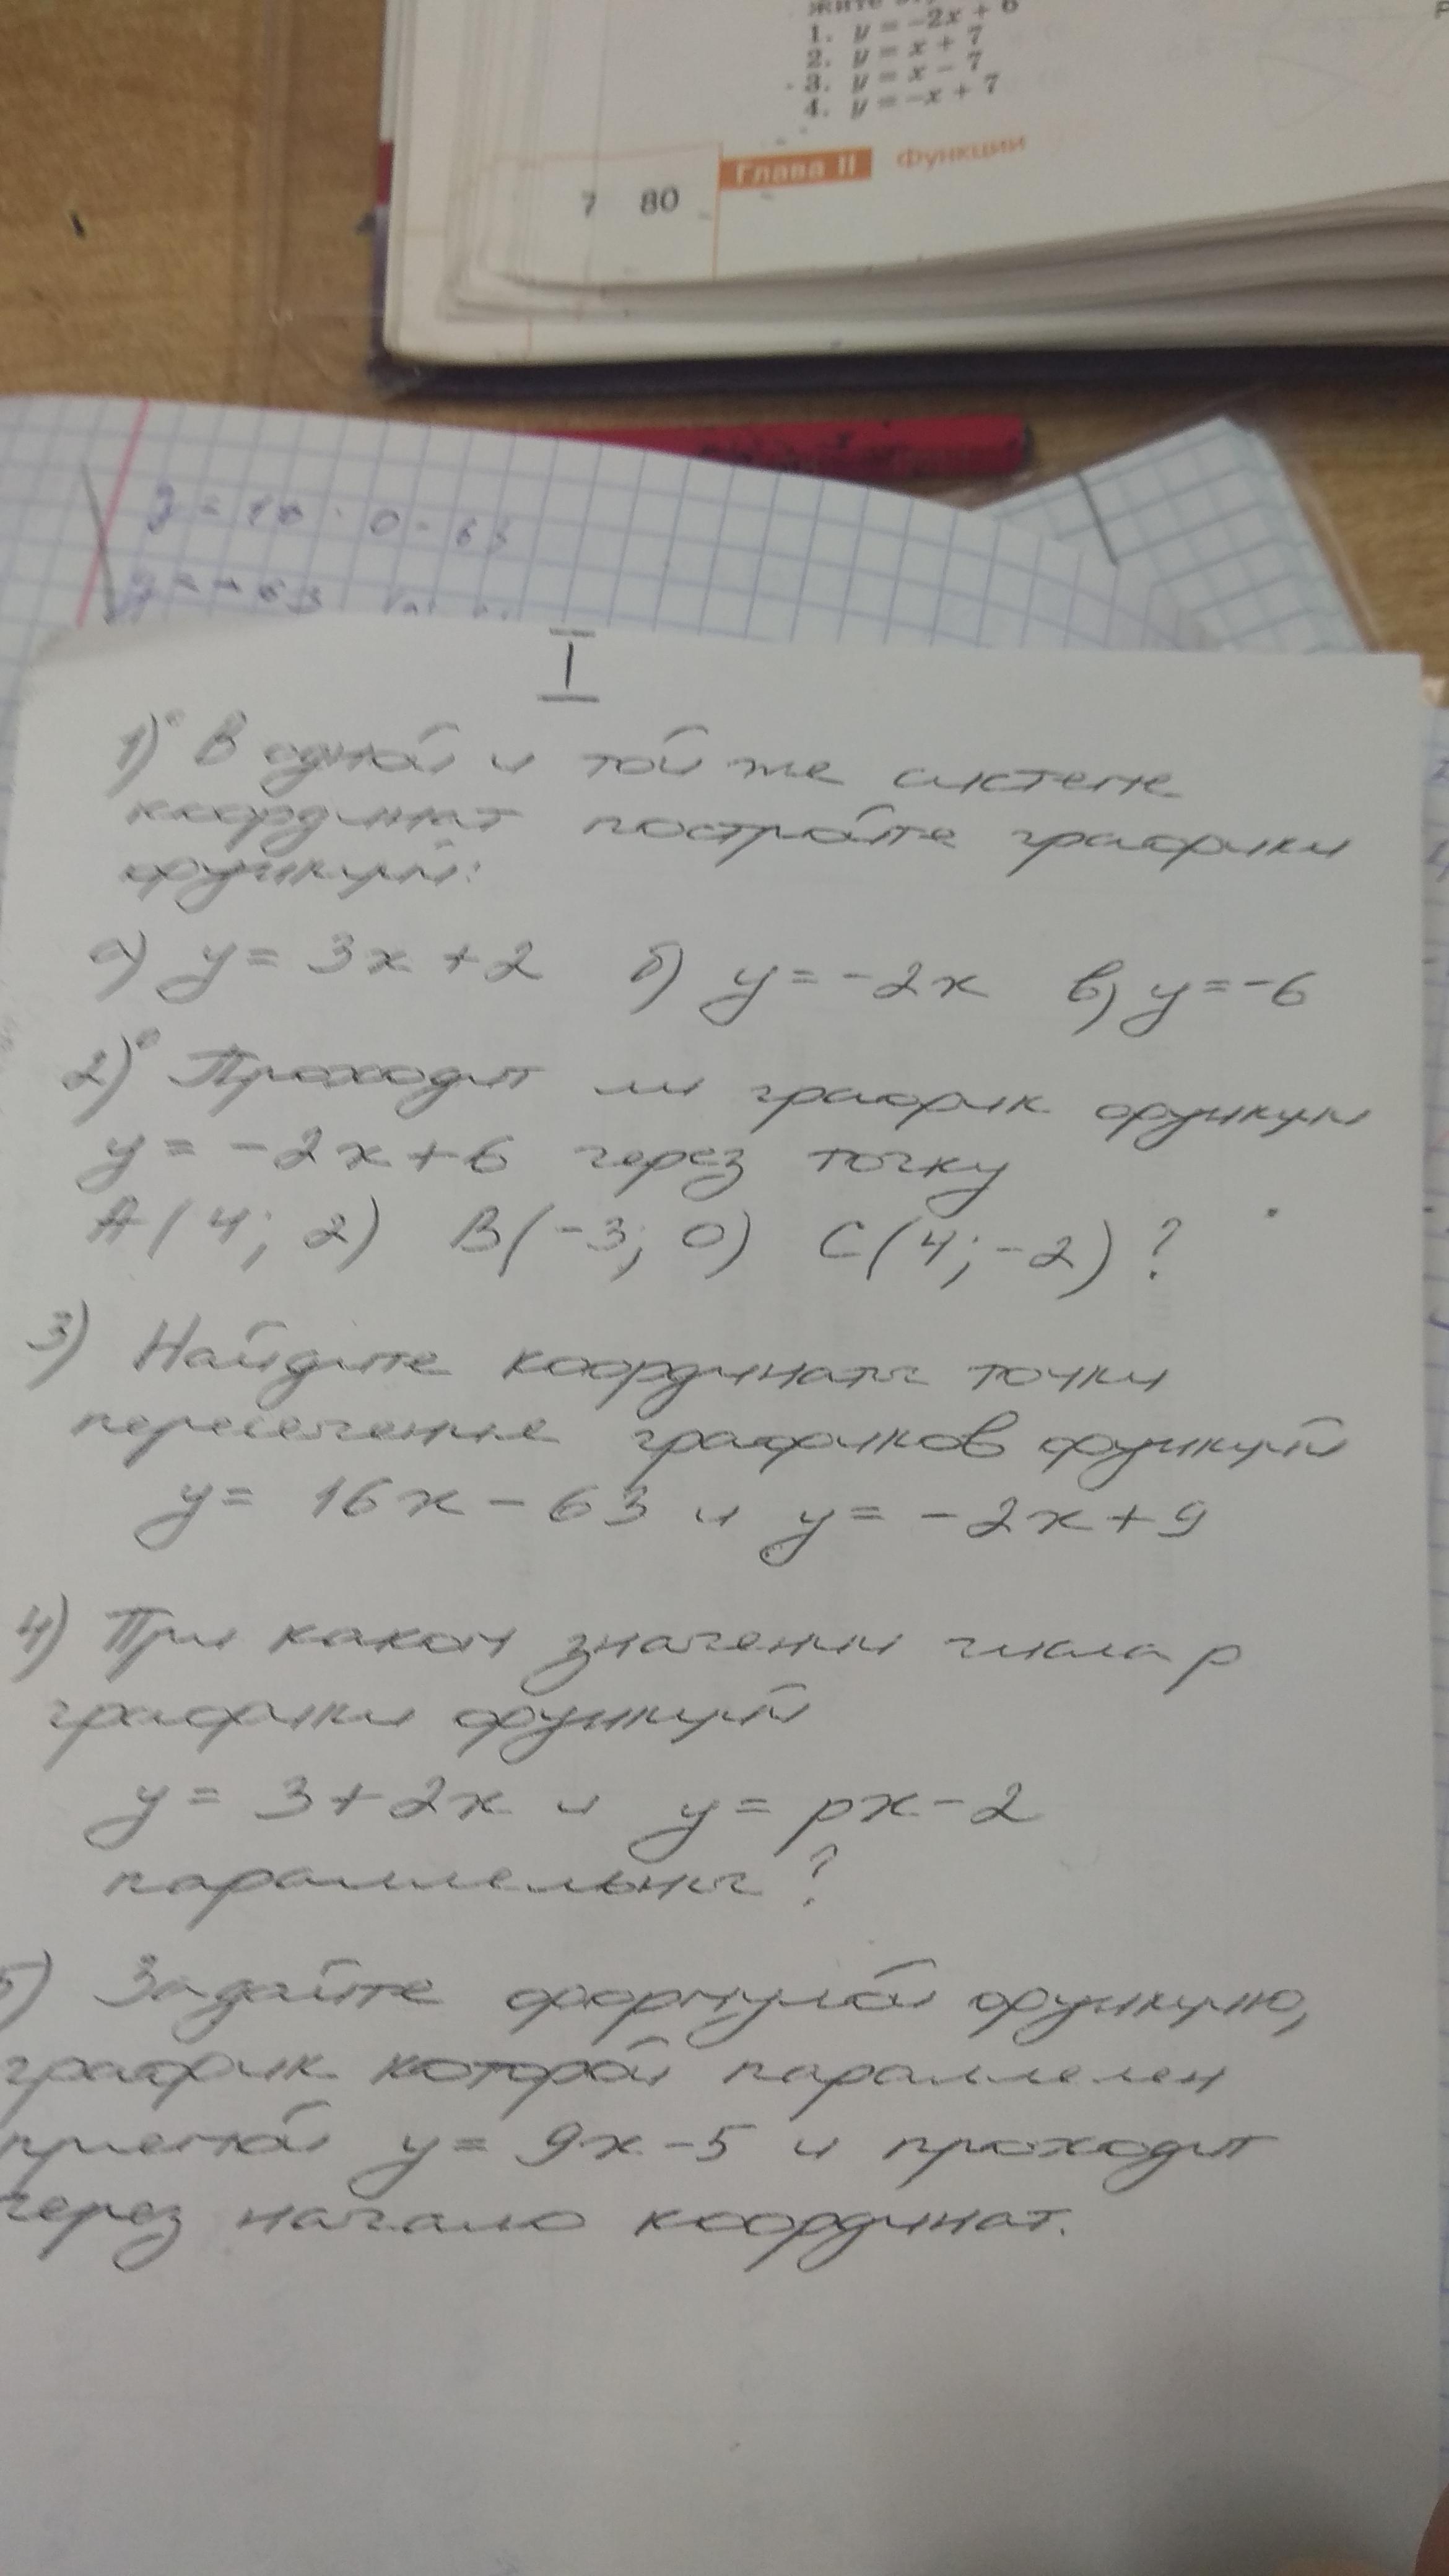 1. y = -2x + 6
2. y = x + 7
3. y = x - 7
4. y = -x + 7
Глава II Функции
7 80
I
1)° В одной и той же системе
координат постройте графики
функций:
а) y = 3x + 2 б) y = -2x в) y = -6
2)° Проходит ли график функции
y = -2x + 6 через точку
A(4; 2) B(-3; 0) C(4; -2)?
3) Найдите координаты точки
пересечения графиков функций
y = 16x - 63 и y = -2x + 9
4) При каком значении числа p
графики функций
y = 3 + 2x и y = px - 2
параллельны?
5) Задайте формулой функцию,
график которой параллелен
прямой y = 9x - 5 и проходит
через начало координат.